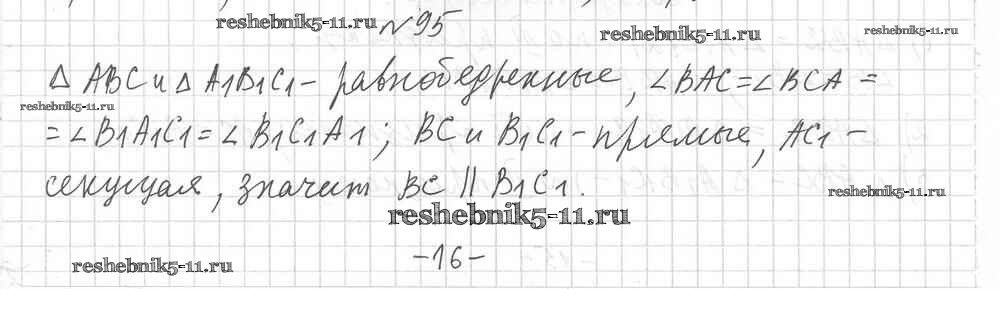 reshebnik5-11.ru
№95
reshebnik5-11.ru
reshebnik5-11.ru
△ ABC и △ A1B1C1 - равнобедренные, ∠BAC = ∠BCA =
reshebnik5-11.ru
= ∠B1A1C1 = ∠B1C1A1; BC и B1C1 - прямые, AC1 -
секущая, значит BC || B1C1.
reshebnik5-11.ru
reshebnik5-11.ru
-16-
reshebnik5-11.ru